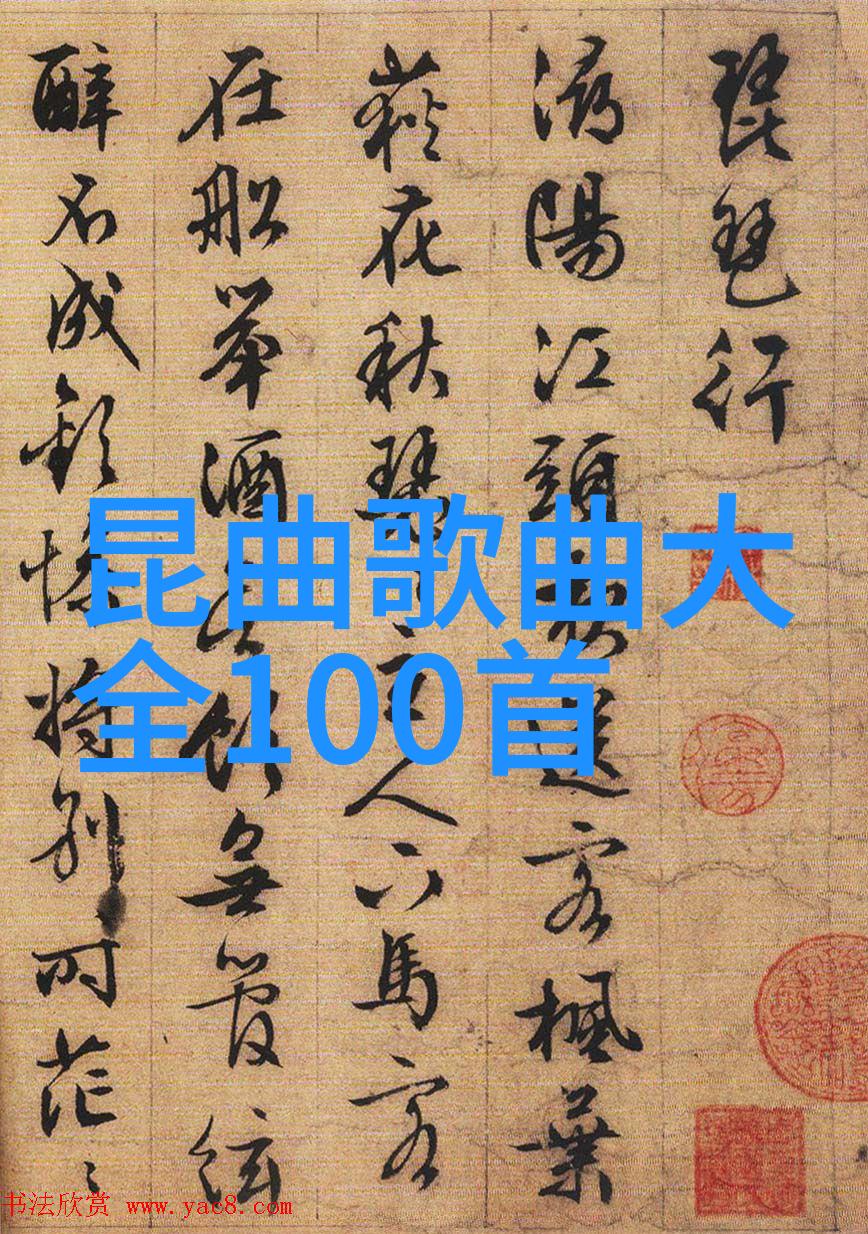 琵琶行
潯陽江頭夜送客楓葉
荻花秋瑟〻主人下馬客
在船舉酒欲飲無管絃
醉不成歡慘將別時茫〻
昆曲歌曲大
全100首
书法欣赏 www.yac8.com